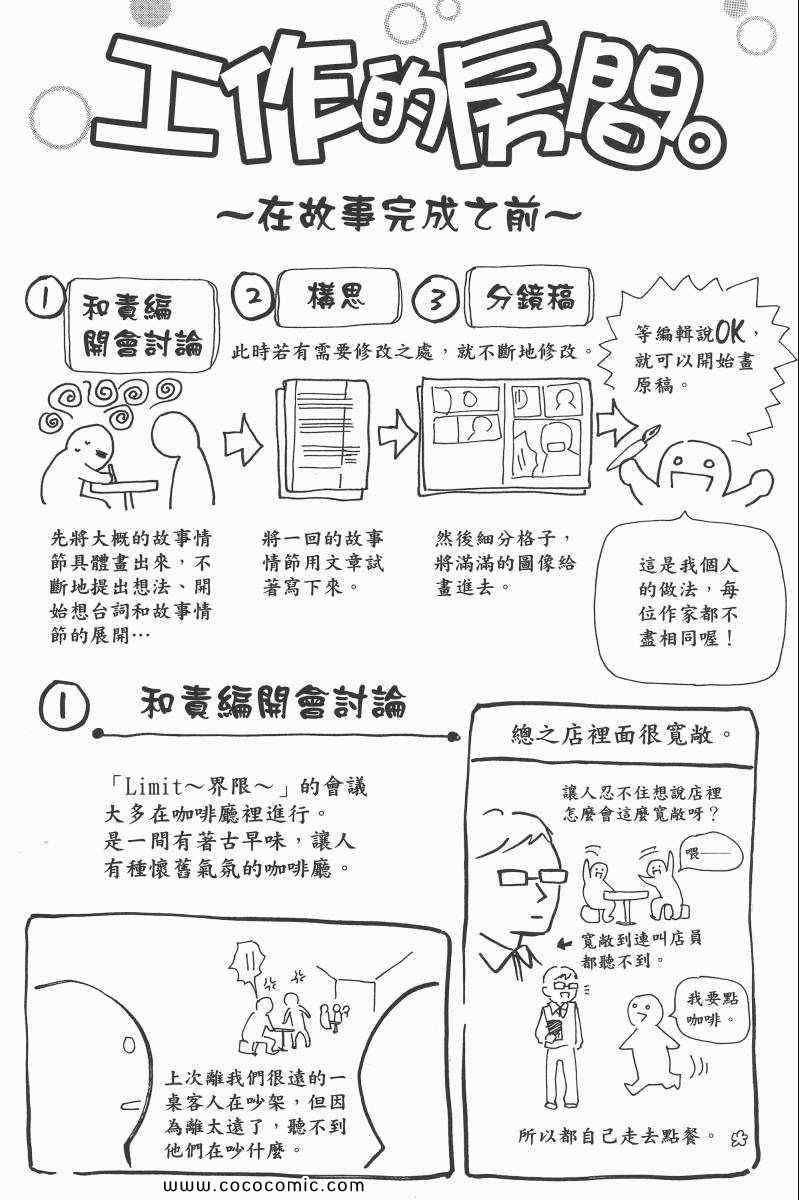 工作的房間。
～在故事完成之前～
①
和責編
開會討論
② 構思
③ 分鏡稿
此時若有需要修改之處，就不斷地修改。
等編輯說OK，
就可以開始畫
原稿。
先將大概的故事情
節具體畫出來，不
斷地提出想法、開
始想台詞和故事情
節的展開…
將一回的故事
情節用文章試
著寫下來。
然後細分格子，
將滿滿的圖像給
畫進去。
這是我個人
的做法，每
位作家都不
盡相同喔！
① 和責編開會討論
「Limit～界限～」的會議
大多在咖啡廳裡進行。
是一間有著古早味，讓人
有種懷舊氣氛的咖啡廳。
總之店裡面很寬敞。
讓人忍不住想說店裡
怎麼會這麼寬敞呀？
喂——
寬敞到連叫店員
都聽不到。
我要點
咖啡。
所以都自己走去點餐。
上次離我們很遠的一
桌客人在吵架，但因
為離太遠了，聽不到
他們在吵什麼。
www.cococomic.com